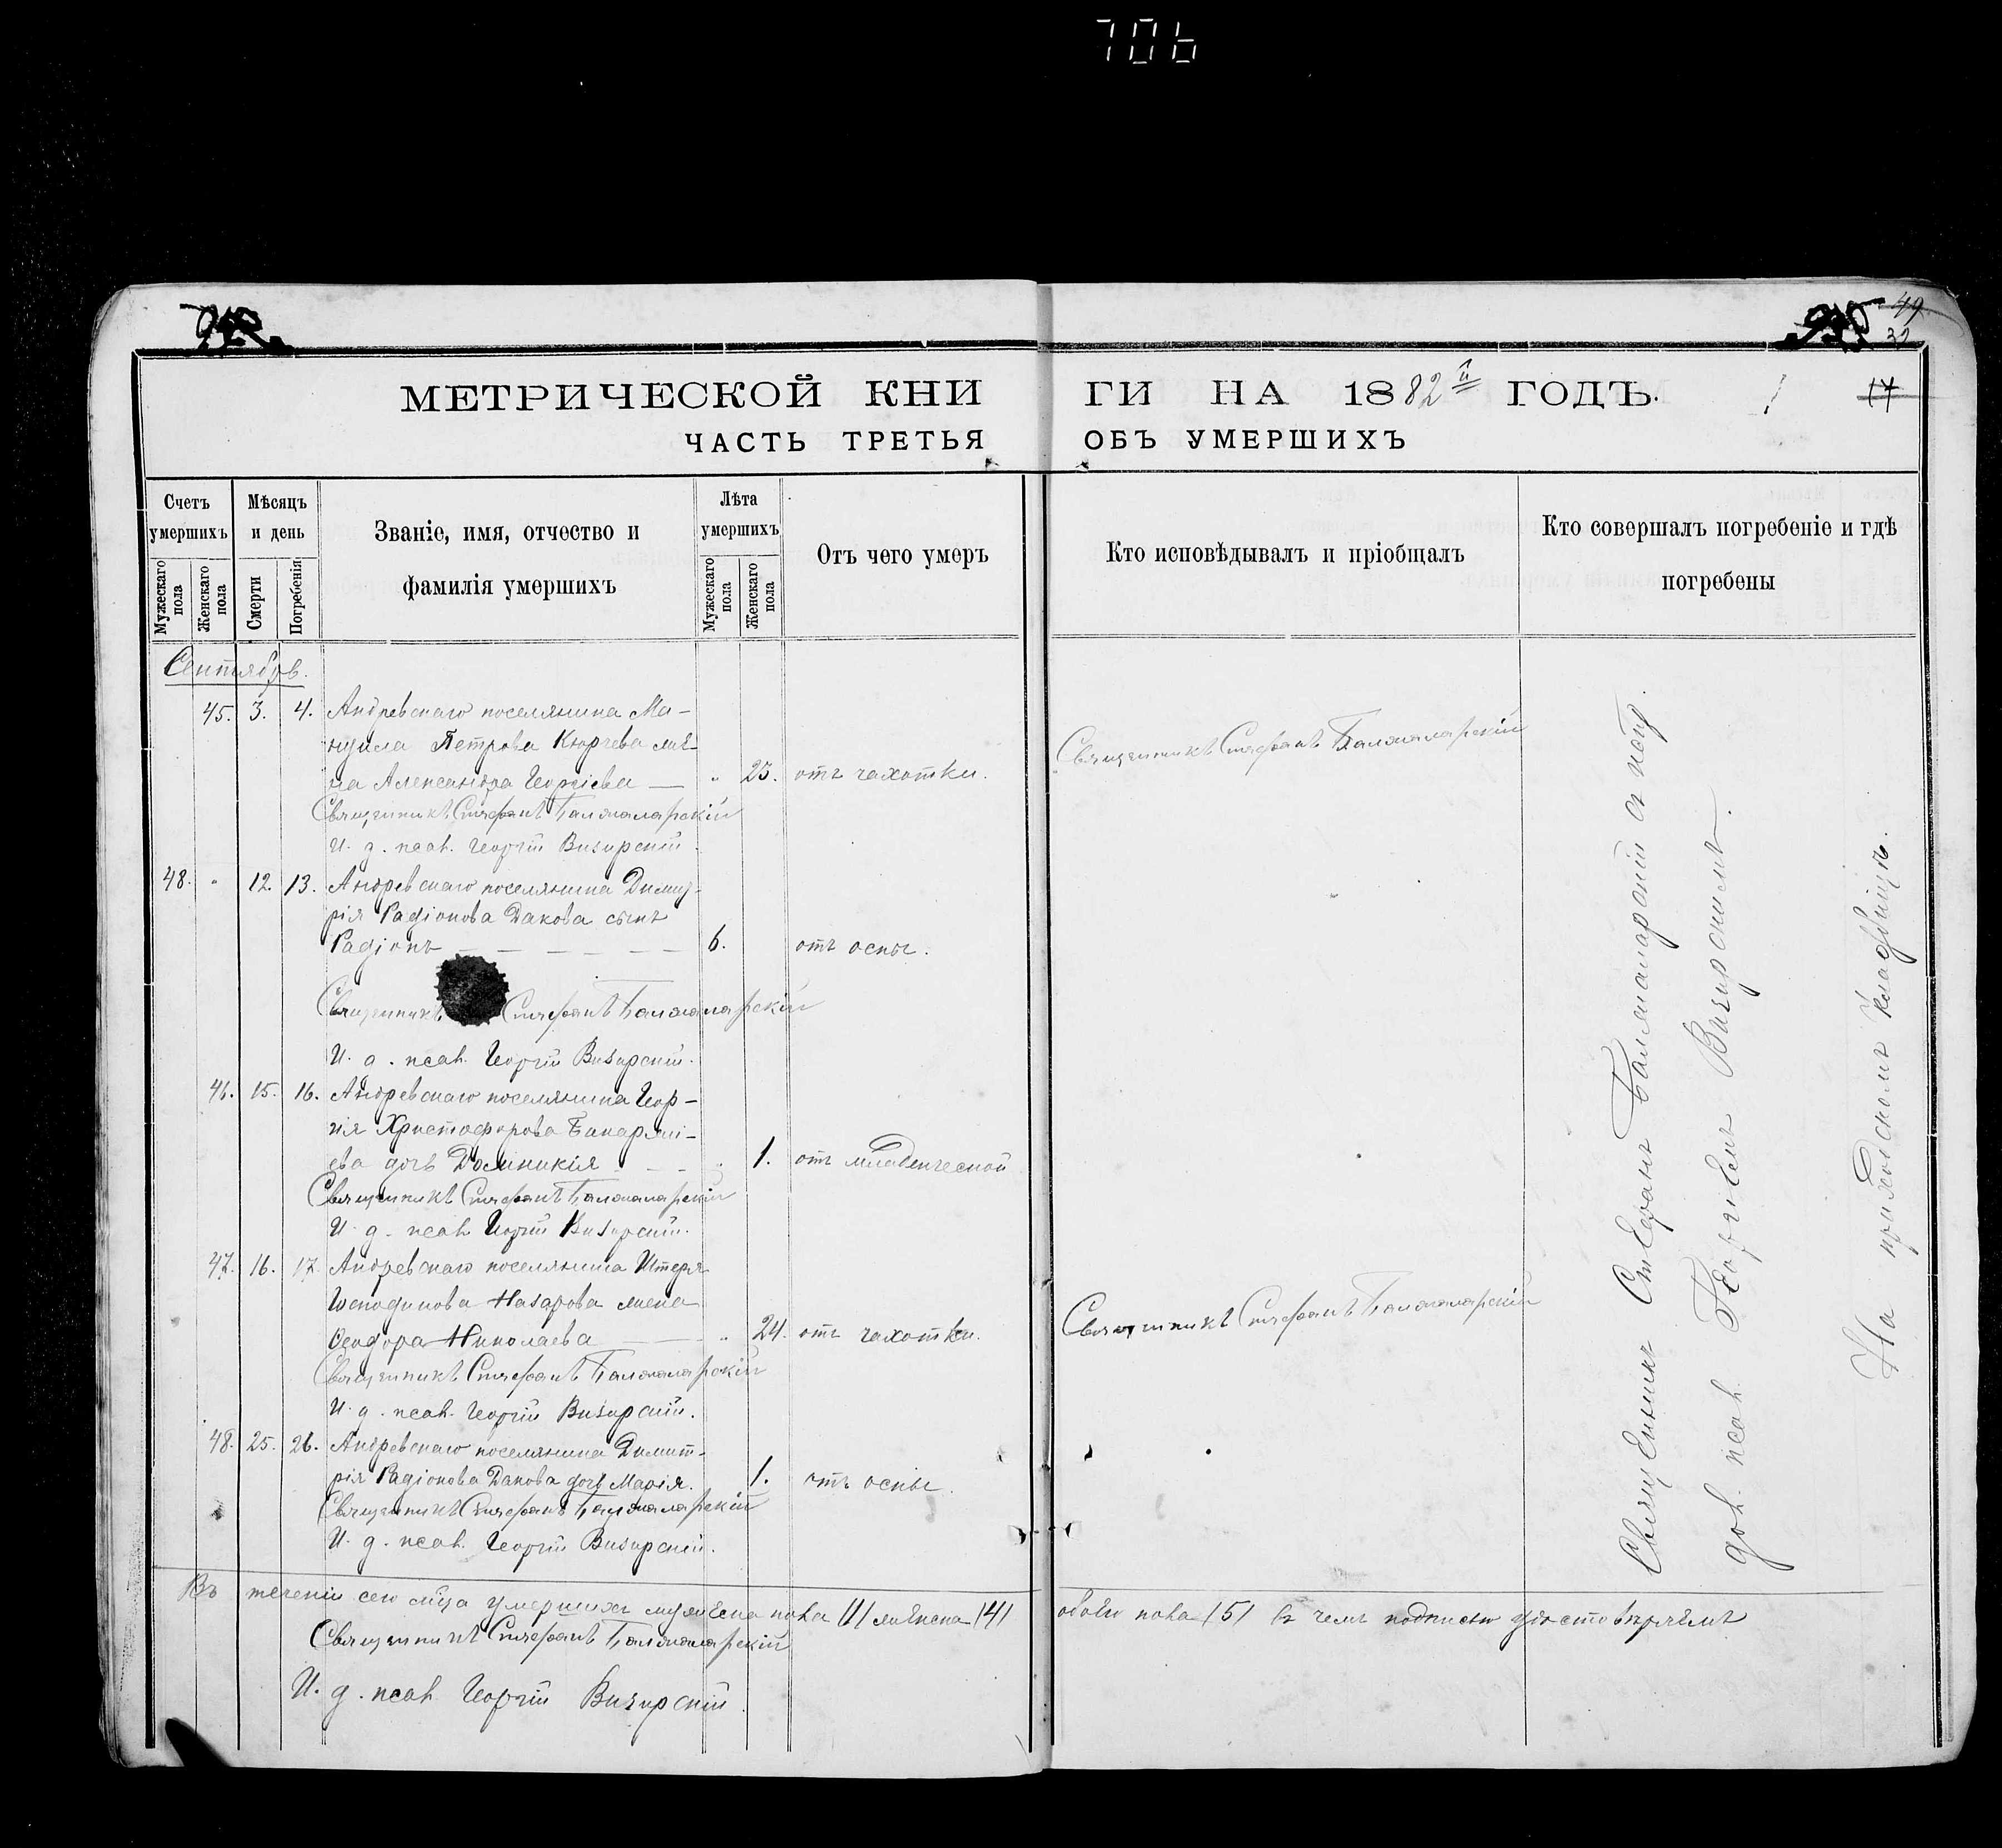 706
49
32
МЕТРИЧЕСКОЙ КНИГИ НА 1882й ГОДЪ.
17
ЧАСТЬ ТРЕТЬЯ ОБЪ УМЕРШИХЪ
Счетъ умершихъ
Мужескаго пола
Женскаго пола
Мѣсяцъ и день
Смерти
Погребенія
Званіе, имя, отчество и
фамилія умершихъ
Лѣта умершихъ
Мужескаго пола
Женскаго пола
Отъ чего умеръ
Кто исповѣдывалъ и пріобщалъ
Кто совершалъ погребеніе и гдѣ
погребены
Сентябрь.
45. 3. 4. Андревскаго поселянина Ма-
нуила Петрова Кюрчева же-
на Александра Георгіева — " 25. отъ чахотки. Священникъ Стефанъ Балжаларскій
Священникъ Стефанъ Балжаларскій
И. д. псал. Георгій Визирскій.
48. " 12. 13. Андревскаго поселянина Димит-
рія Радіонова Дакова сынъ
Радіонъ — — — — — 6. отъ оспы.
Священникъ Стефанъ Балжаларскій
И. д. псал. Георгій Визирскій.
46. 15. 16. Андревскаго поселянина Геор-
гія Христофорова
ева дочь Доминикія — — " 1. отъ младенческой
Священникъ Стефанъ Балжаларскій
И. д. псал. Георгій Визирскій.
47. 16. 17. Андревскаго поселянина
Господинова Назарова жена
Ѳеодора Николаева — " 24. отъ чахотки. Священникъ Стефанъ Балжаларскій
Священникъ Стефанъ Балжаларскій
И. д. псал. Георгій Визирскій.
48. 25. 26. Андревскаго поселянина Димит-
рія Радіонова Дакова дочь Марія. 1. отъ оспы.
Священникъ Стефанъ Балжаларскій
И. д. псал. Георгій Визирскій.
Въ теченіи сего м-ца умершихъ мужеска пола /1/ женска /4/ обоего пола /5/ въ чемъ подписью удостовѣряемъ
Священникъ Стефанъ Балжаларскій
И. д. псал. Георгій Визирскій.
Священникъ Стефанъ Балжаларскій съ
псал. Георгіемъ Визирскимъ.
На приходскомъ кладбищѣ.